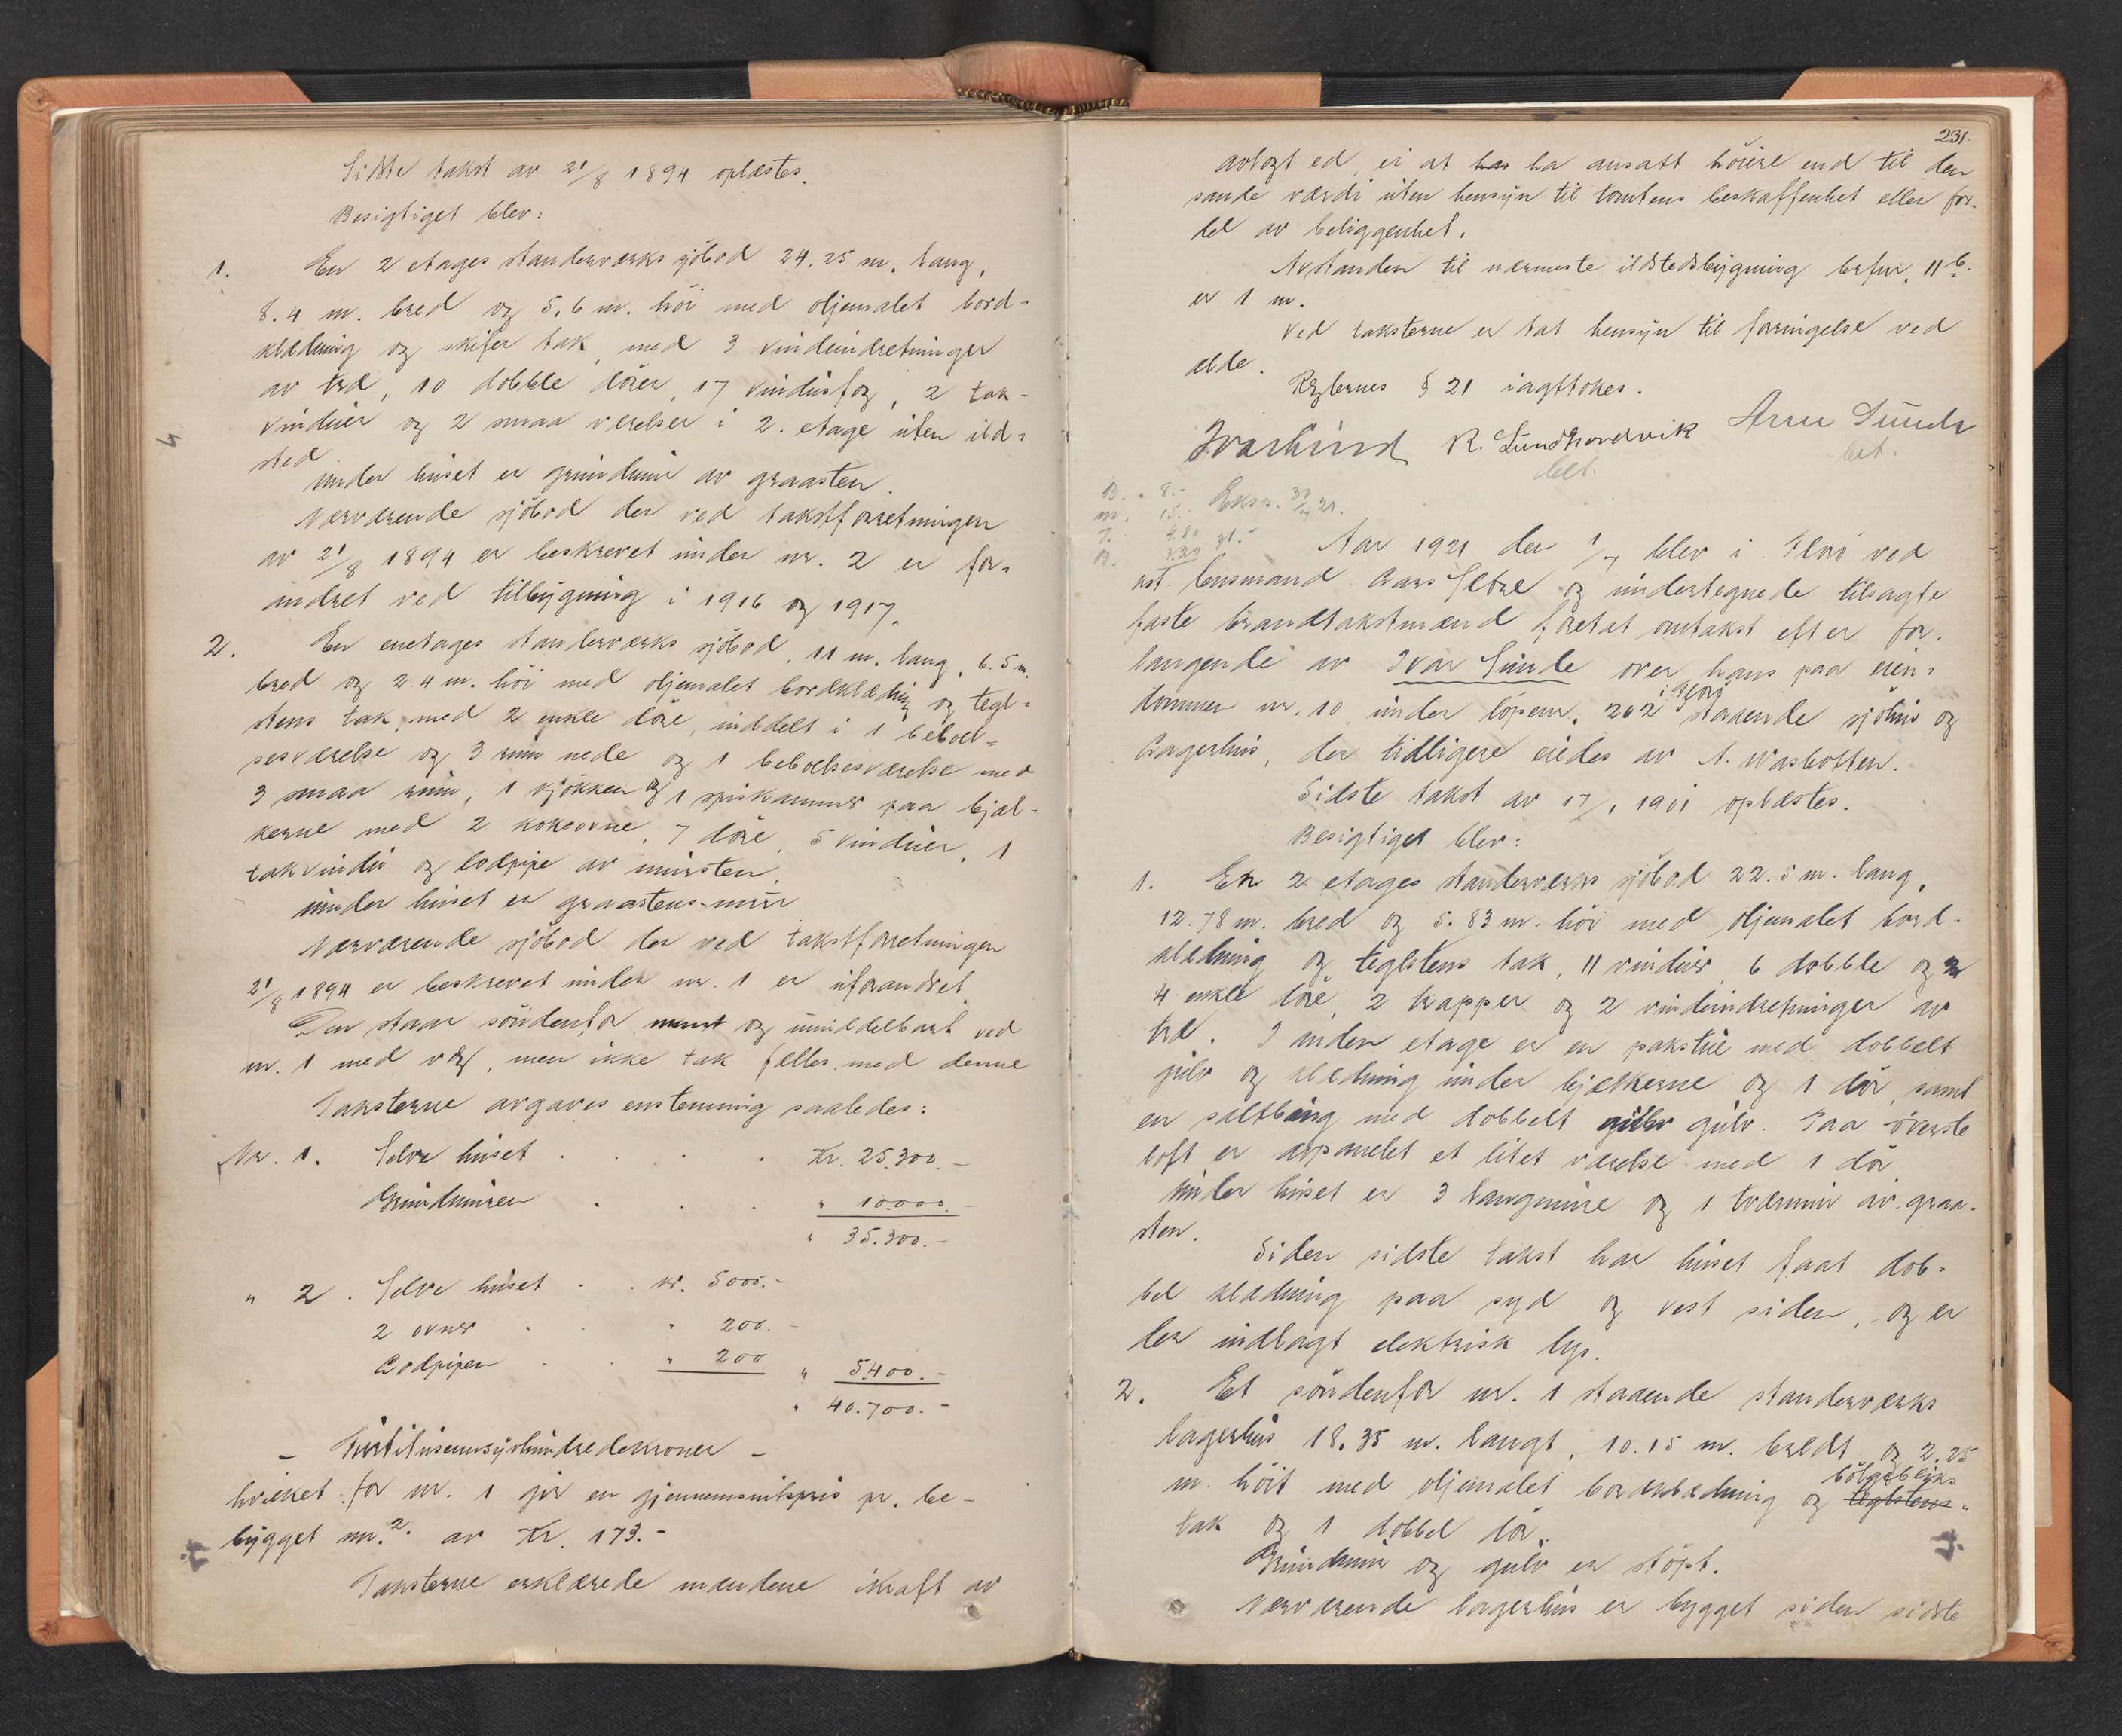 Sidste takst av 21/8 1894 oplæstes.
Besigtiget blev:
1. En 2 etages standerværks sjöbod 24,25 m. lang,
8.4 m. bred og 5,6 m. höi med oljemalet bord-
klædning og skifer tak, med 3 vindeindretninger
av træ, 10 dobble dörer, 17 vindusfag, 2 tak-
vinduer og 2 smaa værelser i 2. etage uten ild-
sted.
Under huset er grundmur av graasten.
Nærværende sjöbod der ved takstforretningen
av 21/8 1894 er beskrevet under nr. 2 er for-
andret ved tilbygning i 1916 og 1917.
2. En enetages standerværks sjöbod, 11 m. lang, 6.5 m.
bred og 2.4 m. höi med oljemalet bordklædning og tegl-
stens tak, med 2 enkle döre, inddelt i 1 beboel-
sesværelse og 3 rum nede og 1 beboelsesværelse med
3 smaa rum, 1 kjökken og 1 spiskammer paa bjæl-
kerne med 2 kokeovne, 7 döre, 5 vinduer, 1
takvindu og lodpipe av mursten.
Under huset er graastens-mur
Nærværende sjöbod der ved takstforretningen
21/8 1894 er beskrevet under nr. 1 er uforandret.
Den staar söndenfor og umiddelbart ved
nr. 1 med væg, men ikke tak fælles med denne
Taksterne avgaves enstemmig saaledes:
Nr. 1. Selve huset . . . Kr. 25.300.-
Grundmuren . . . " 10.000.-
" 35.300.-
" 2. Selve huset . . kr. 5000.-
2 ovner . . " 200.-
Lodpipen . . " 200 " 5.400.-
" 40.700.-
- Firtitusensyvhundredekroner -
hvilket for nr. 1 gir en gjennemsnitspris pr. be-
bygget m.2. av Kr. 173.-
Taksterne erklærede mændene ikraft av
231.
avlagt ed, ei at has ha ansatt höiere end til den
sande værdi uten hensyn til tomtens beskaffenhet eller for-
del av beliggenhet.
Avstanden til nærmeste ildstedsbygning brfnr. 11 b.
er 1 m.
Ved taksterne er tat hensyn til forringelse ved
ælde.
Reglernes § 21 iagttokes.
Ivar Lund R. Sundhordvik Arne Sunde
bet. bet.
B. " 8.-
m. 15.- Eksp. 30/7 21.
T. 4.80
B. 3.20 31.-
Aar 1921 den 1/7 blev i Florö ved
kst. lensmand Lars Sætre og undertegnede tilsagte
faste brandtakstmænd foretat omtakst efter for-
langende av Ivar Sunde over hans paa eien-
dommen nr. 10 under löpenr. 202 i Florö staaende sjöhus og
Lagerhus, der tidligere eiedes av A. Wasbotten.
Sidste takst av 17/1 1901 oplæstes.
Besigtiget blev:
1. En 2 etages standerværks sjöbod 22.5 m. lang,
12.78 m. bred og 5.83 m. höi med oljemalet bord-
klædning og teglstens tak, 11 vinduer, 6 dobble og
4 enkle döre, 2 trapper og 2 vindeindretninger av
træ. I anden etage er en pakstue med dobbelt
gulv og klædning under bjelkerne og 1 dör, samt
en saltbing med dobbelt gulv gulv. Paa överste
loft er avpanelet et litet værelse med 1 dör
Under huset er 3 langmure og 1 tværmur av graa-
sten.
Siden sidste takst har huset faat dob-
bel klædning paa syd og vest siden, og er
der indlagt elektrisk lys.
2. Et söndenfor nr. 1 staaende standerværks
lagerhus 18.35 m. langt, 10.15 m. bredt og 2.25
m. höit med oljemalet bordklædning og teglstens- bölgebliks
tak og 1 dobbel dör.
Grundmur og gulv er stöpt.
Nærværende lagerhus er bygget siden sidste